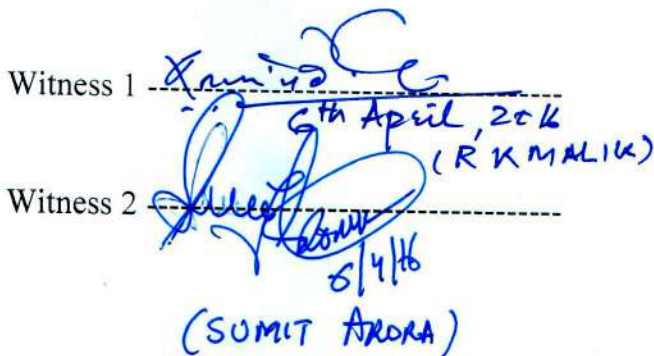 Witness 1
6th April, 2016
(R K MALIK)
Witness 2
6/4/16
(SUMIT ARORA)